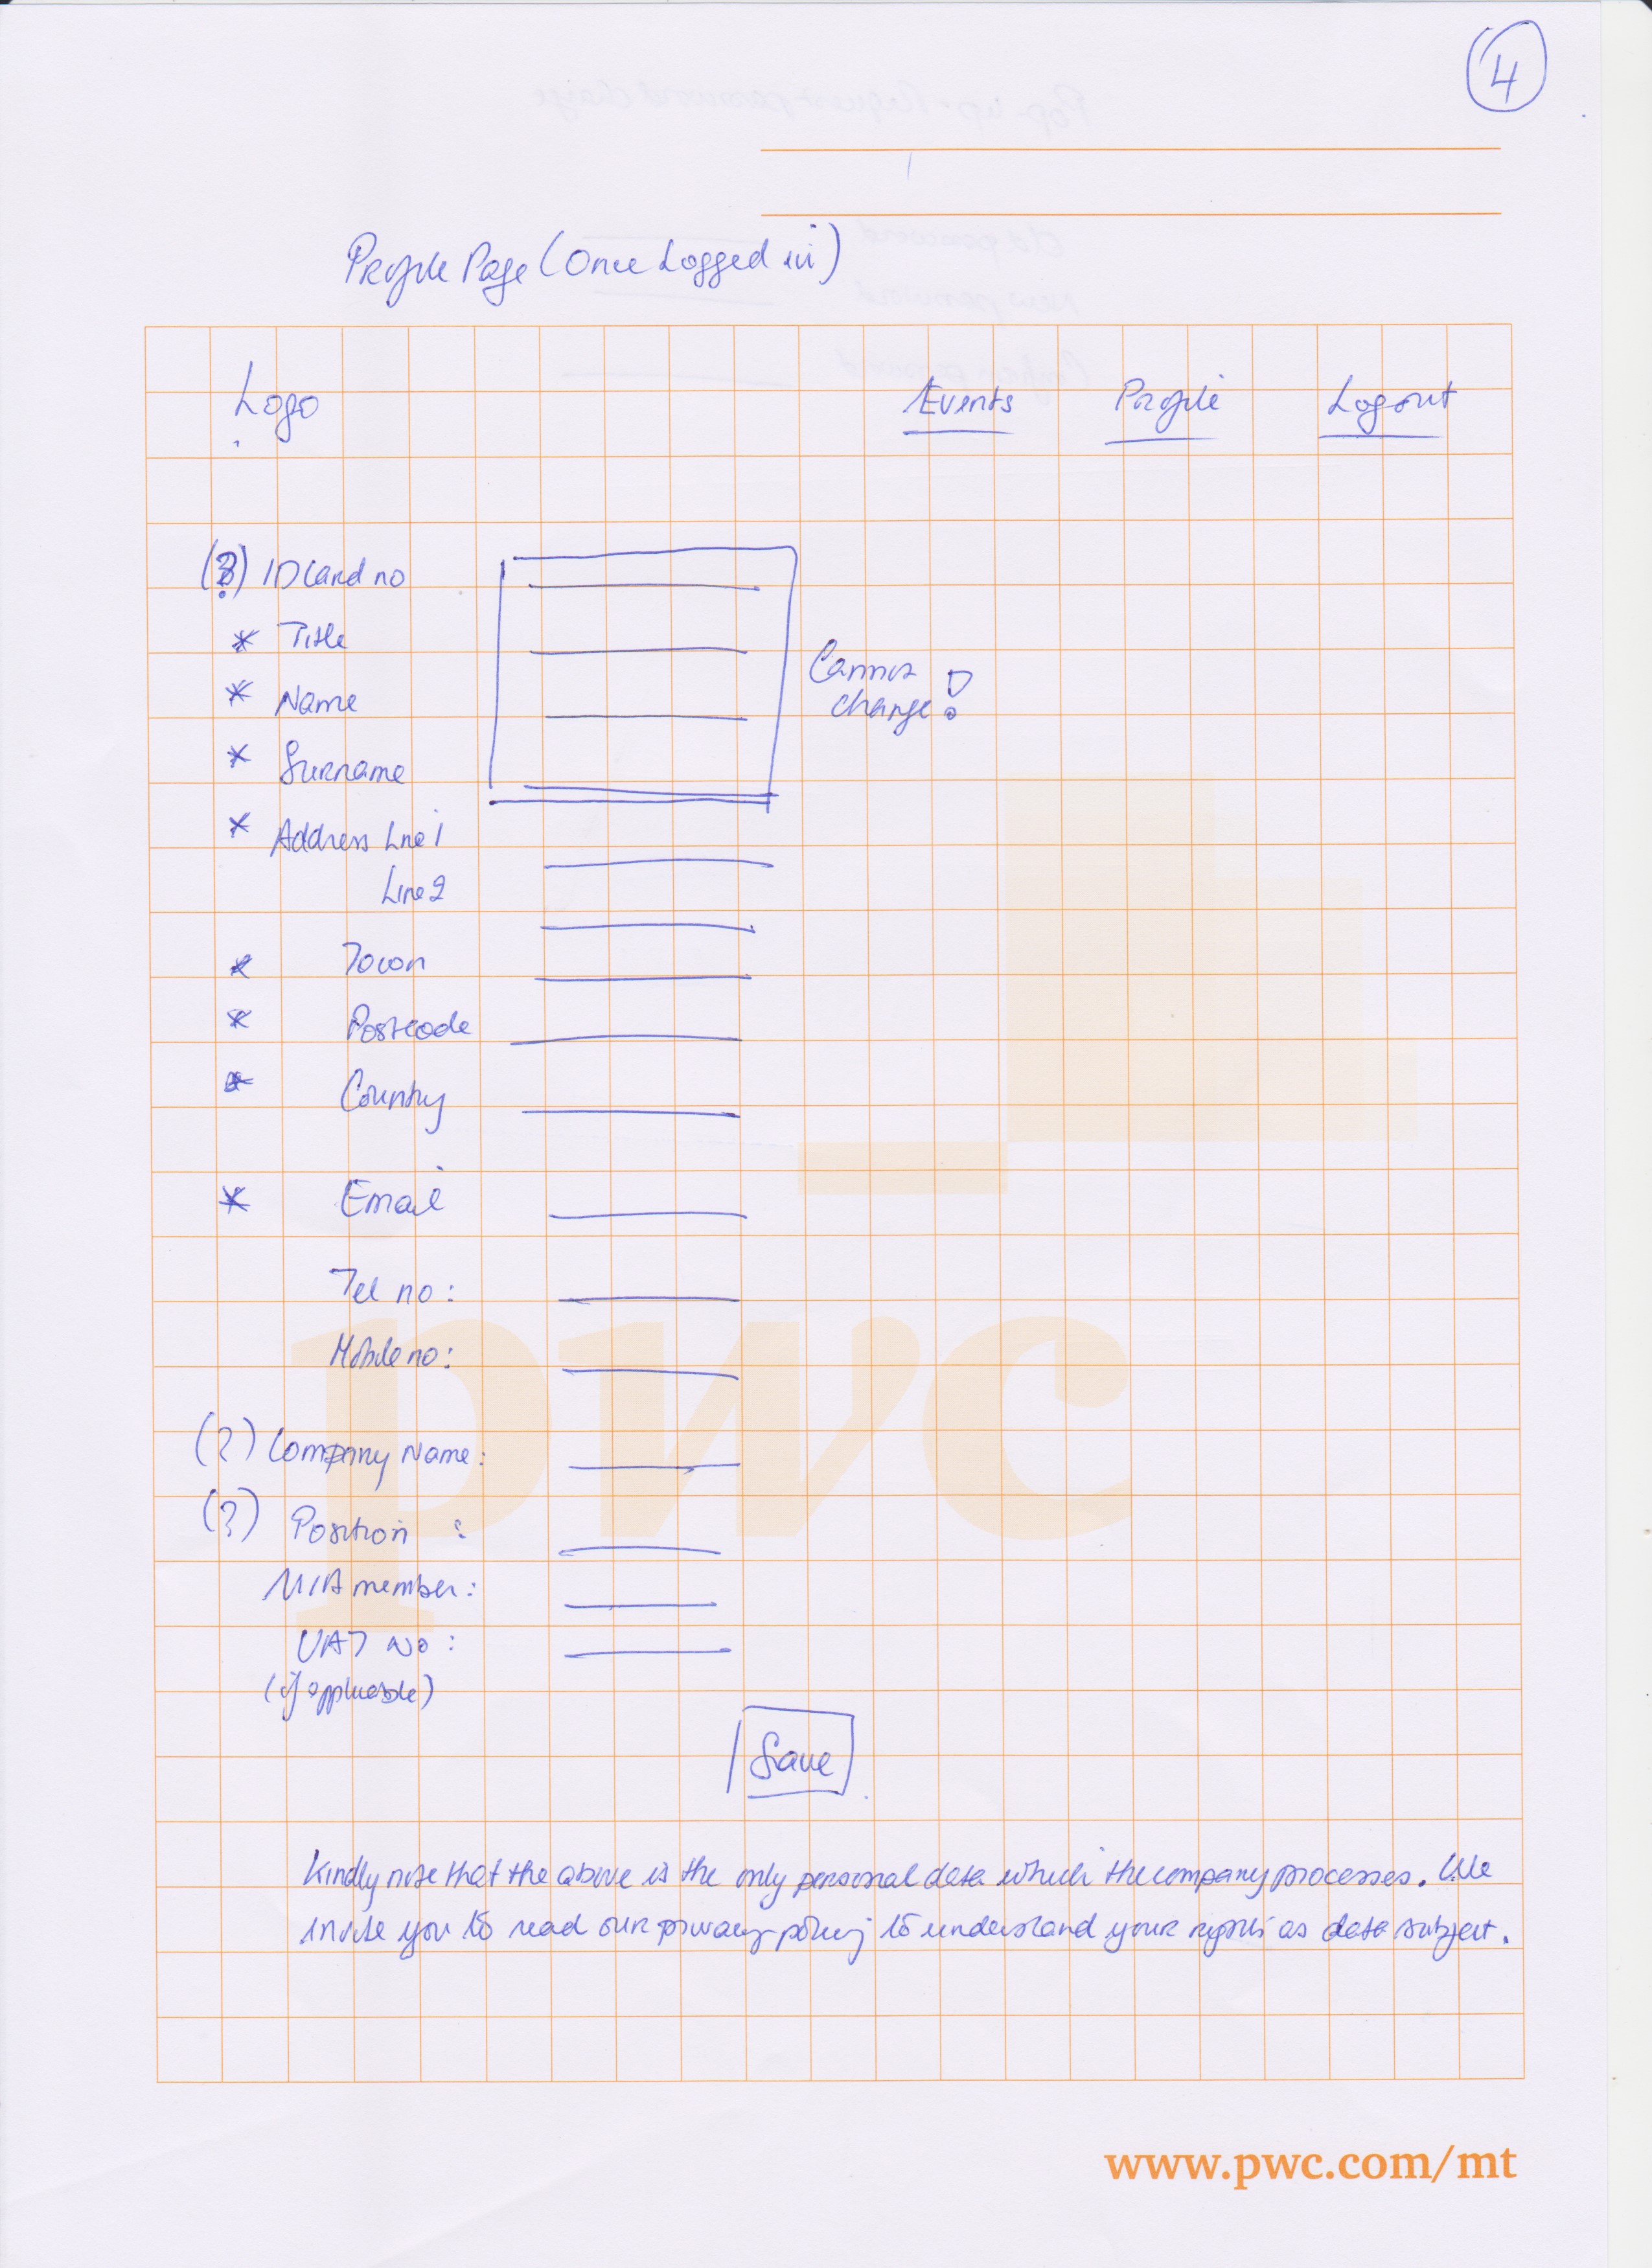 4
Profile Page (Once Logged in)
Logo Events Profile Logout
(?) ID Card no
* Title
* Name
Cannot
change!
* Surname
* Address Line 1
Line 2
* Town
* Postcode
* Country
* Email
Tel no:
Mobile no:
(?) Company Name:
(?) Position :
MIA member:
VAT No :
(if applicable)
Save
Kindly note that the above is the only personal data which the company processes. We
invite you to read our privacy policy to understand your rights as data subject.
pwc
www.pwc.com/mt